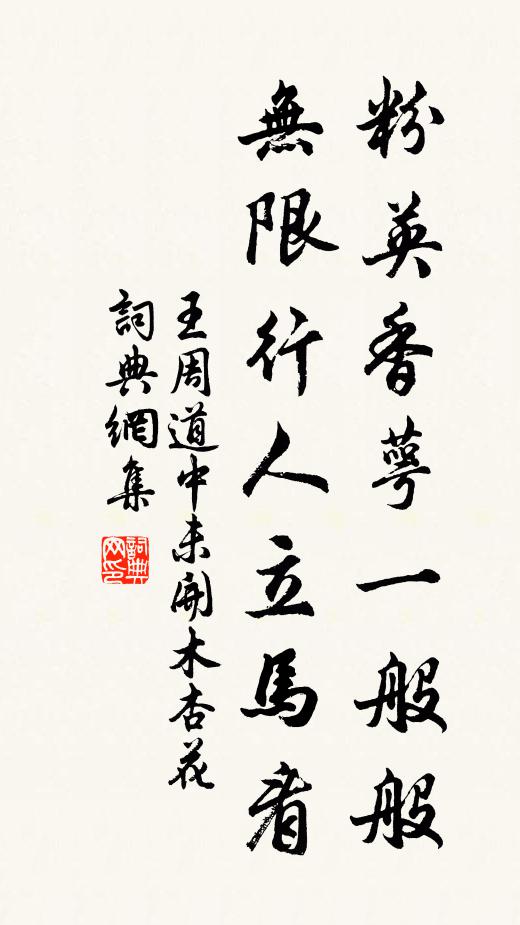 粉英香萼一般般
無限行人立馬看
王周道中未開木杏花
詞典網集
詞典網印